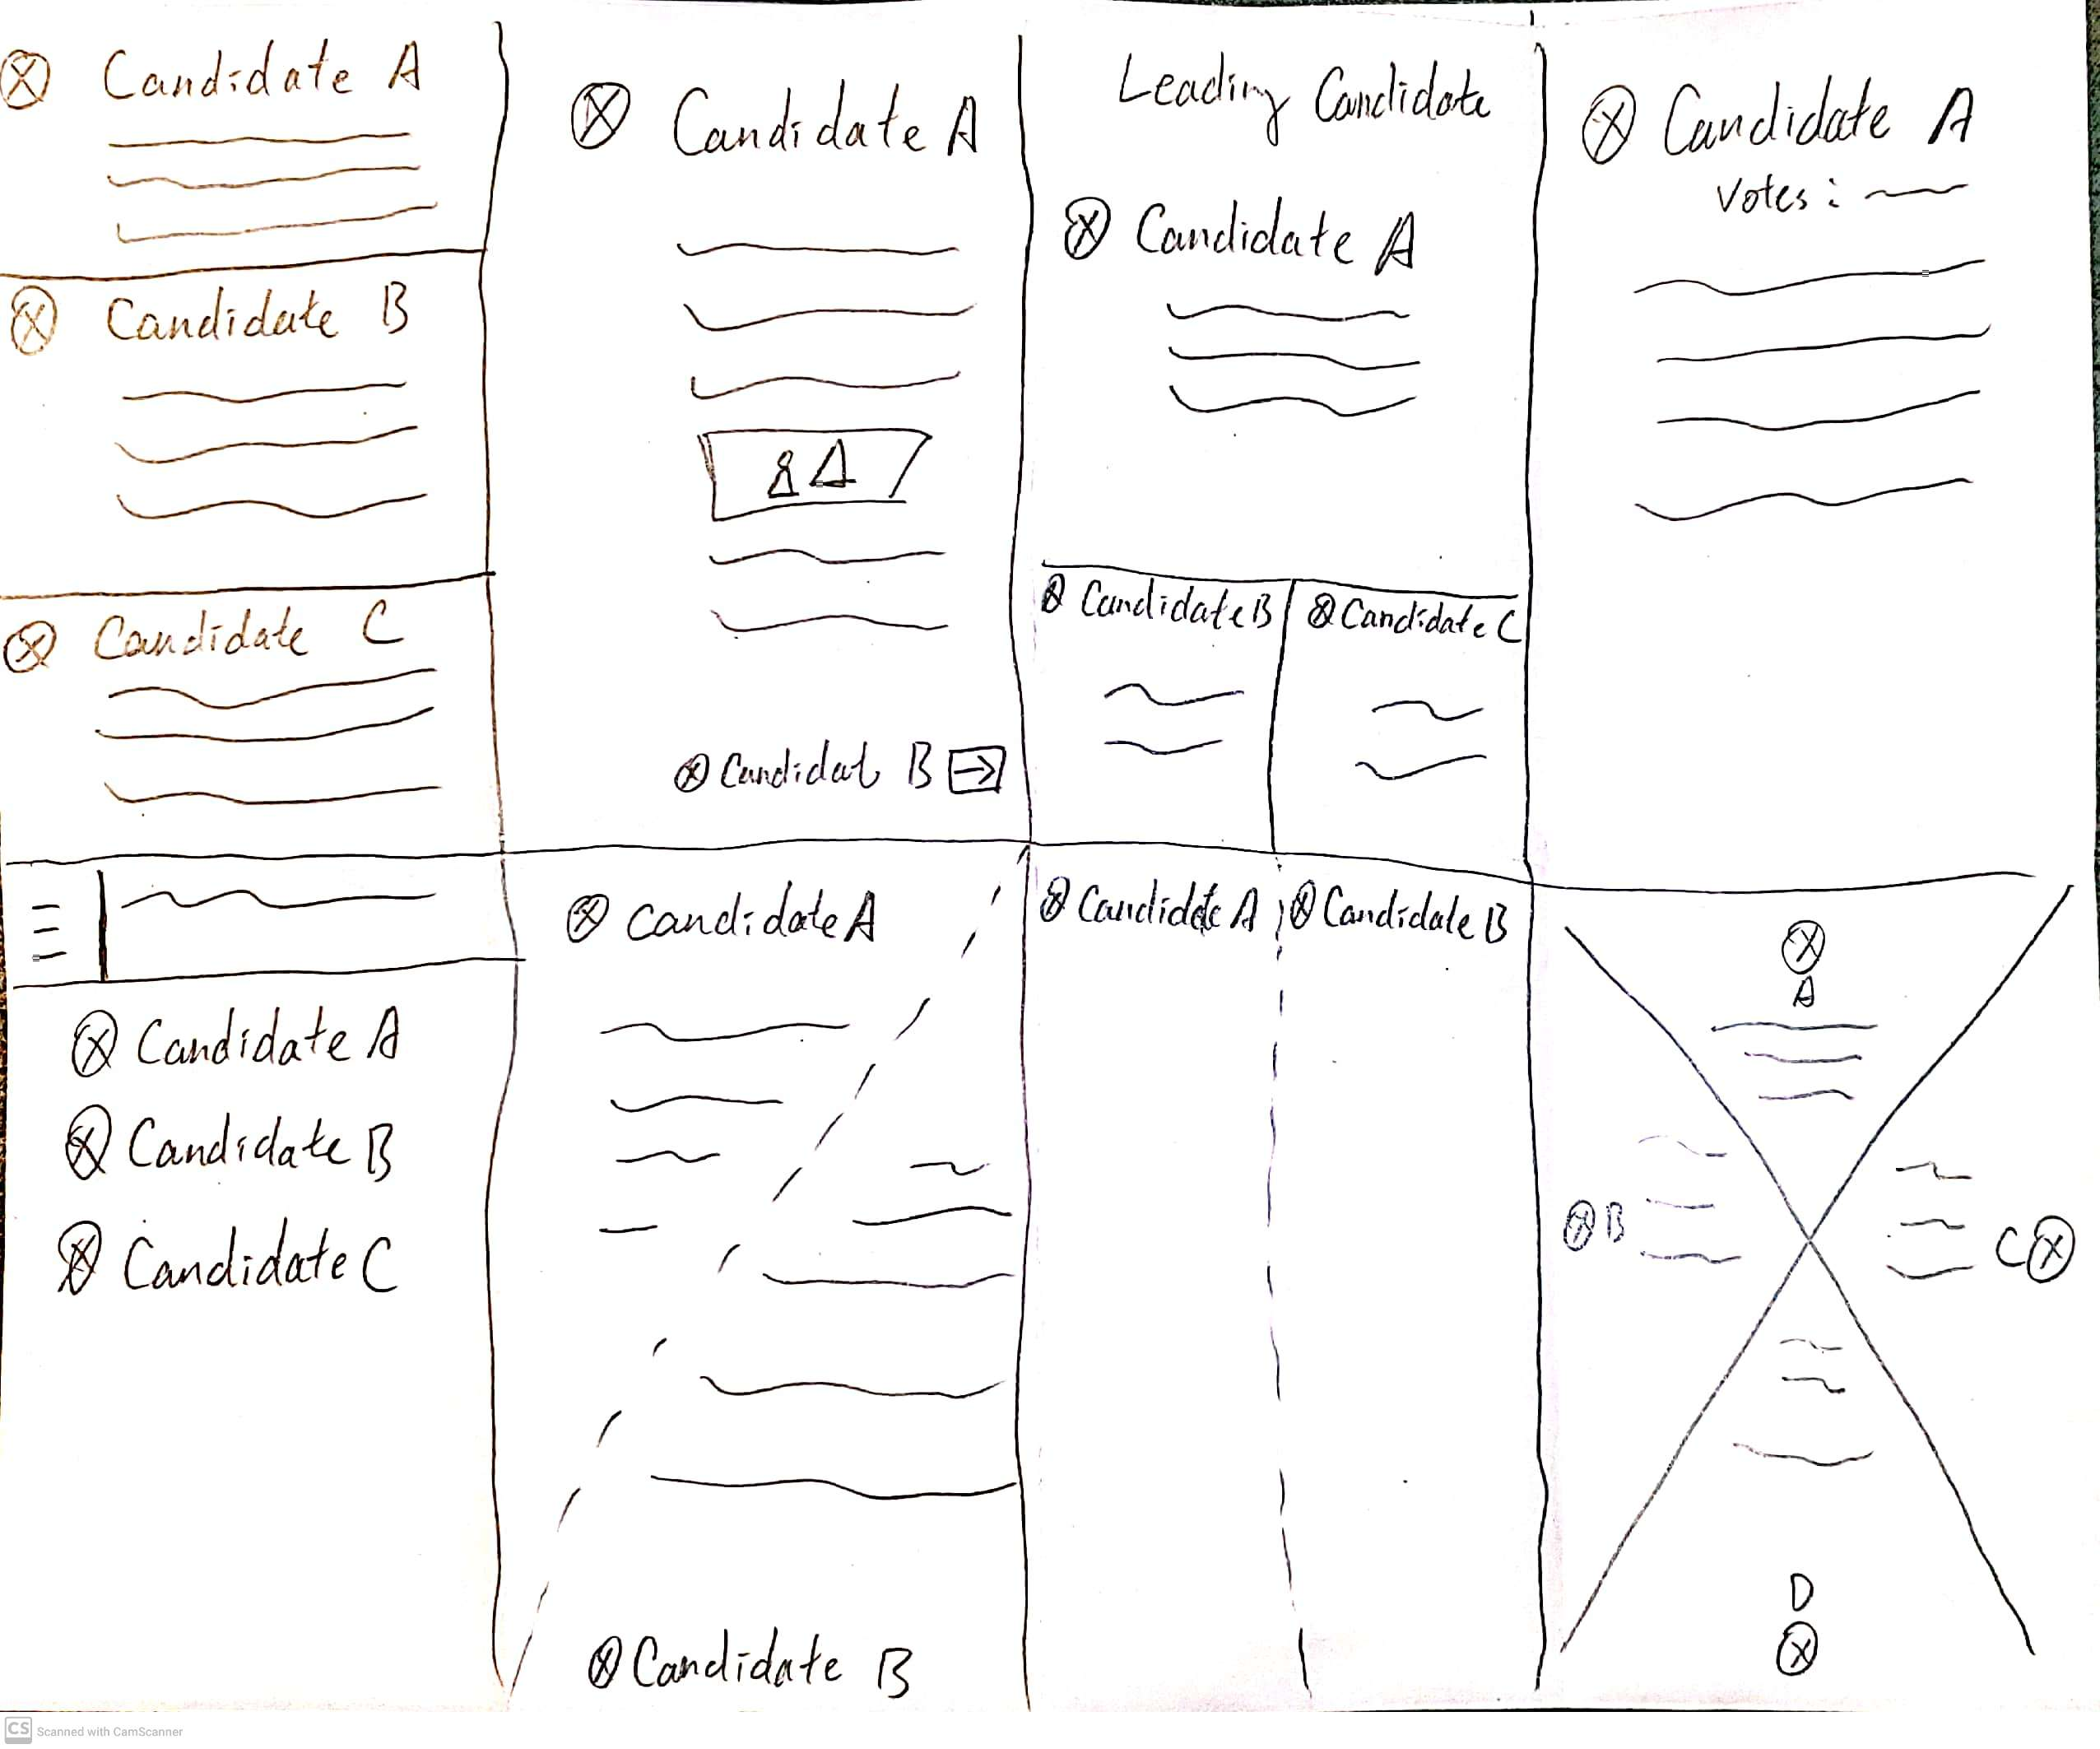 Candidate A
Candidate B
Candidate C
Candidate A
Candidat B
Leading Candidate
Candidate A
Candidate B
Candidate C
Candidate A
Votes:
Candidate A
Candidate B
Candidate C
Candidate A
Candidate B
Candidate A
Candidate B
A
B
C
D
CS Scanned with CamScanner